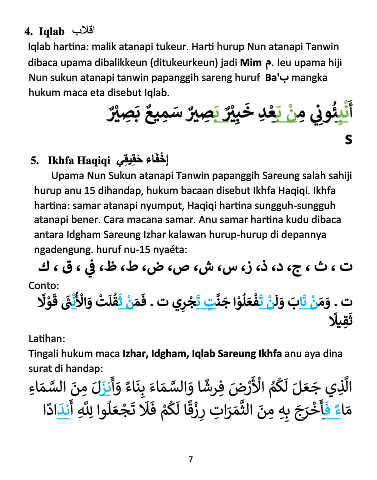 4. Iqlab اقلاب
Iqlab hartina: malik atanapi tukeur. Harti hurup Nun atanapi Tanwin
dibaca upama dibalikkeun (ditukeurkeun) jadi Mim م. Ieu upama hiji
Nun sukun atanapi tanwin papanggih sareng huruf Ba'ب mangka
hukum maca eta disebut Iqlab.
أَنْبِئُونِي مِنْ بَعْدِ خَبِيْرٌ بَصِيرٌ سَمِيعٌ بَصِيْرٌ
S
5. Ikhfa Haqiqi إِخْفَاء حَقِيْقِي
Upama Nun Sukun atanapi Tanwin papanggih Sareung salah sahiji
hurup anu 15 dihandap, hukum bacaan disebut Ikhfa Haqiqi. Ikhfa
hartina: samar atanapi nyumput, Haqiqi hartina sungguh-sungguh
atanapi bener. Cara macana samar. Anu samar hartina kudu dibaca
antara Idgham Sareung Izhar kalawan hurup-hurup di depannya
ngadengung. huruf nu-15 nyaéta:
ت ، ث ، ج، د، ذ، ز، س، ش، ص، ض، ط، ظ، في ، ق ، ك
Conto:
ت ـ وَمَنْ تَابَ وَلَنْ تَفْعَلُوْا جَنَّتٍ تَجْرِي ت ـ فَمَنْ ثَقُلَتْ وَالْأُنْثَى قَوْلًا
ثَقِيلًا
Latihan:
Tingali hukum maca Izhar, Idgham, Iqlab Sareung Ikhfa anu aya dina
surat di handap:
الَّذِي جَعَلَ لَكُمُ الْأَرْضَ فِرشًا وَالسَّمَاءَ بِنَاءً وَأَنزَلَ مِنَ السَّمَاءِ
مَاءً فَأَخْرَجَ بِهِ مِنَ الثَّمَرَاتِ رِزْقًا لَكُمْ فَلَا تَجْعَلُوا لِلَّهِ أَندَادًا
7